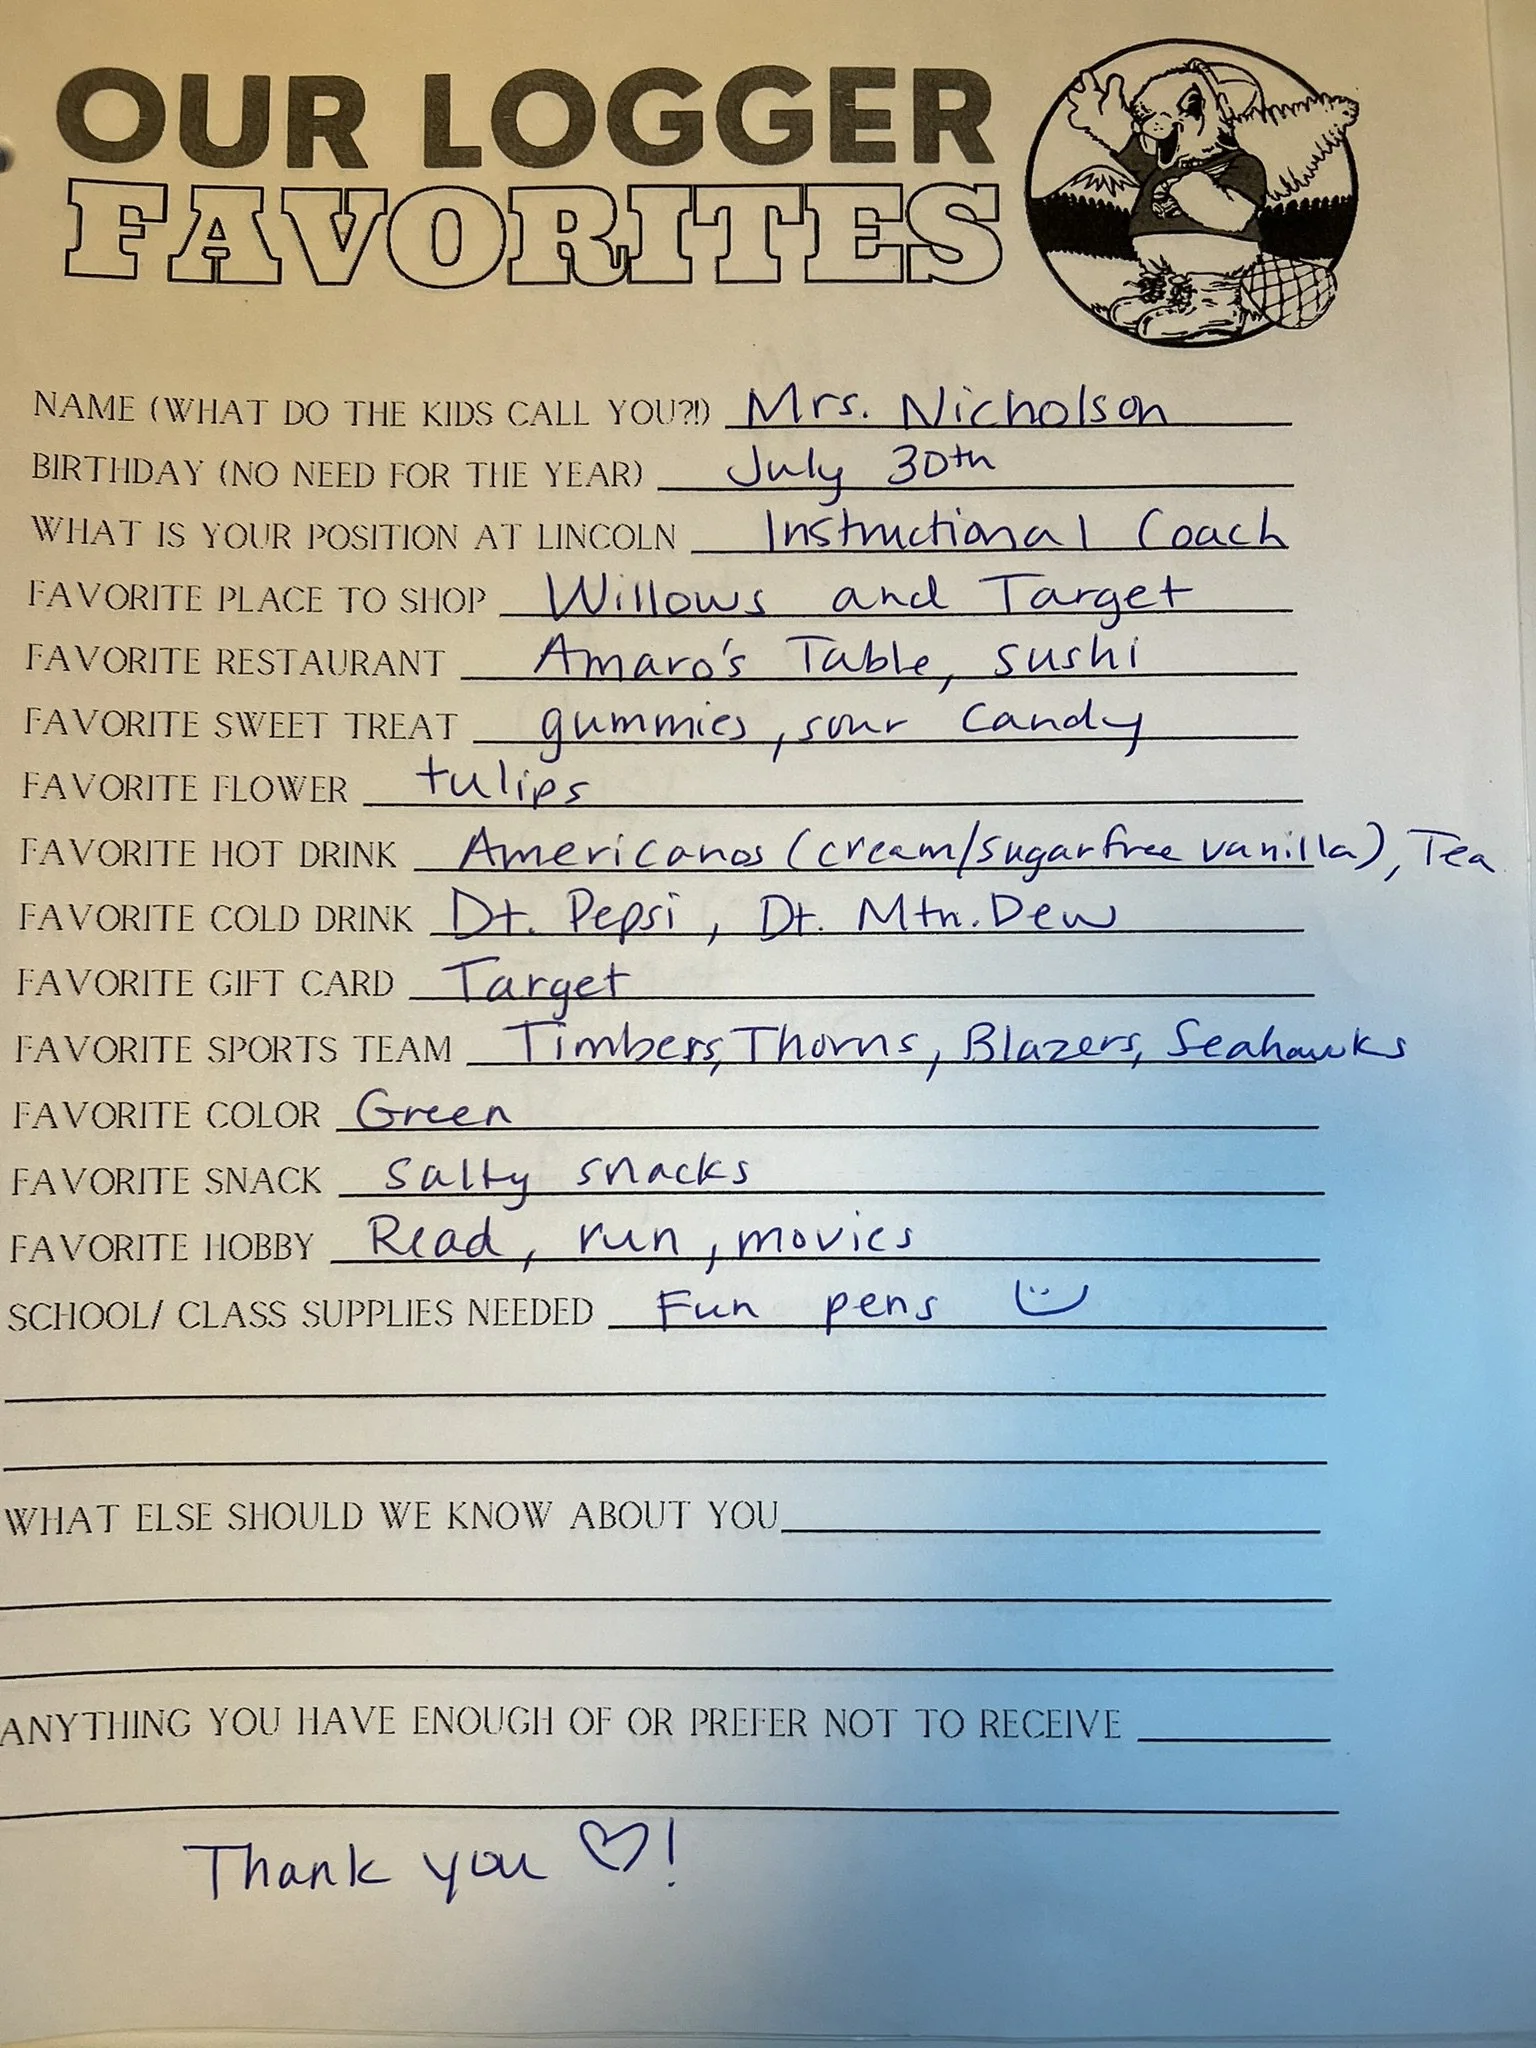 OUR LOGGER
FAVORITES
NAME (WHAT DO THE KIDS CALL YOU?!) Mrs. Nicholson
BIRTHDAY (NO NEED FOR THE YEAR) July 30th
WHAT IS YOUR POSITION AT LINCOLN Instructional Coach
FAVORITE PLACE TO SHOP Willows and Target
FAVORITE RESTAURANT Amaro's Table, sushi
FAVORITE SWEET TREAT gummies, sour candy
FAVORITE FLOWER tulips
FAVORITE HOT DRINK Americanos (cream/sugarfree vanilla), Tea
FAVORITE COLD DRINK Dt. Pepsi, Dt. Mtn. Dew
FAVORITE GIFT CARD Target
FAVORITE SPORTS TEAM Timbers, Thorns, Blazers, Seahawks
FAVORITE COLOR Green
FAVORITE SNACK Salty snacks
FAVORITE HOBBY Read, run, movies
SCHOOL/ CLASS SUPPLIES NEEDED Fun pens
WHAT ELSE SHOULD WE KNOW ABOUT YOU
ANYTHING YOU HAVE ENOUGH OF OR PREFER NOT TO RECEIVE
Thank you ♡!